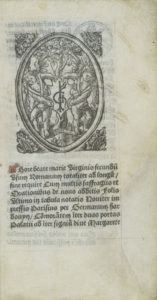 Hore beate marie Virginis secundũ
Usum Romanum totaliter ad longũ
sine require Cum multis suffragiis et
Orationibus de novo additis Folio
Ultimo in tabula notatis Noviter im
pressis Parisius per Germanum Har
douyn, Cõmorãtem iter duas portas
Palatii ad iter signũ dive Margarete